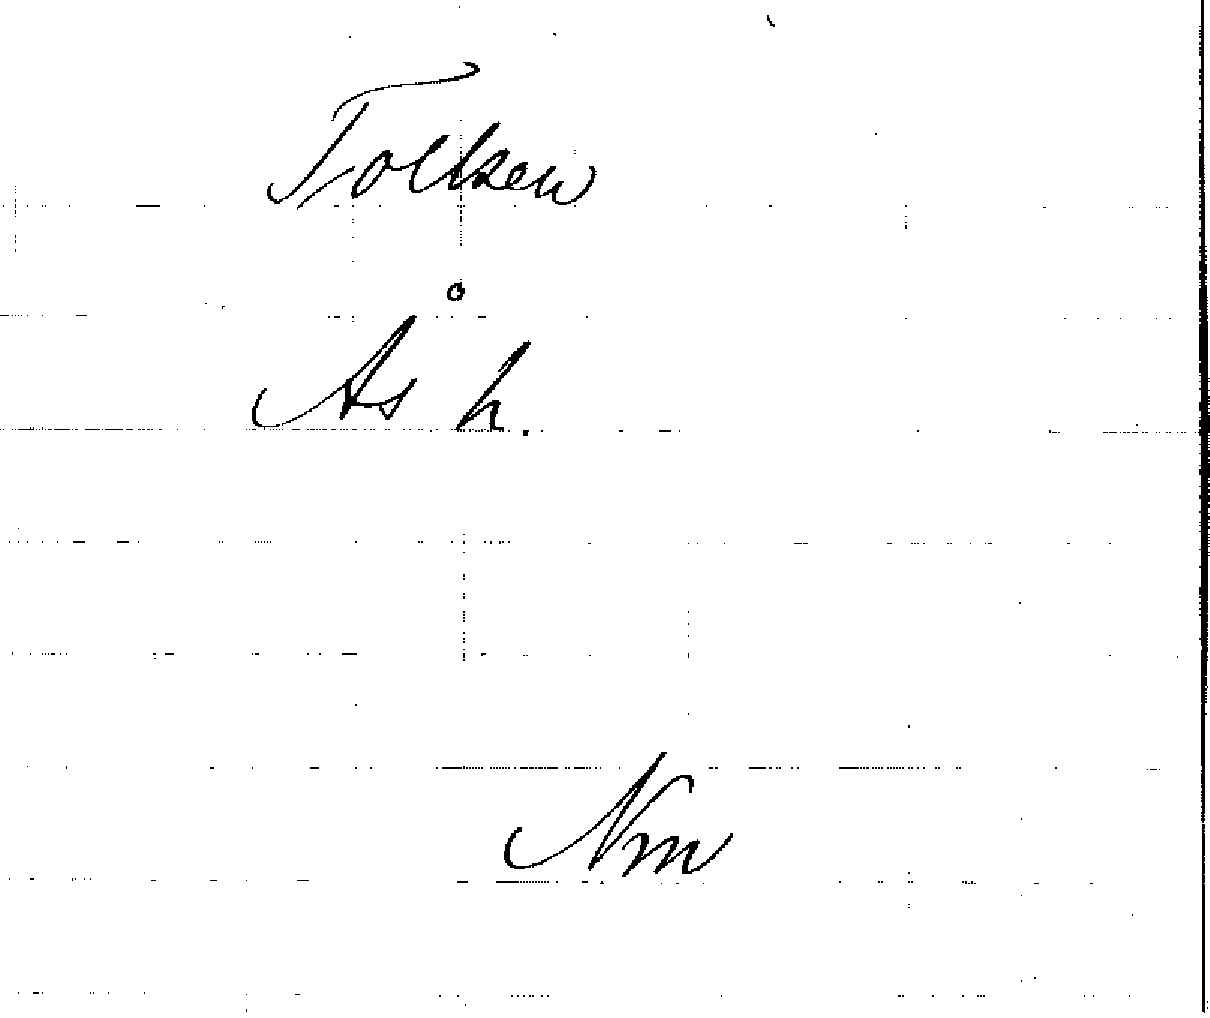 Tolken
Ås h.
Nm